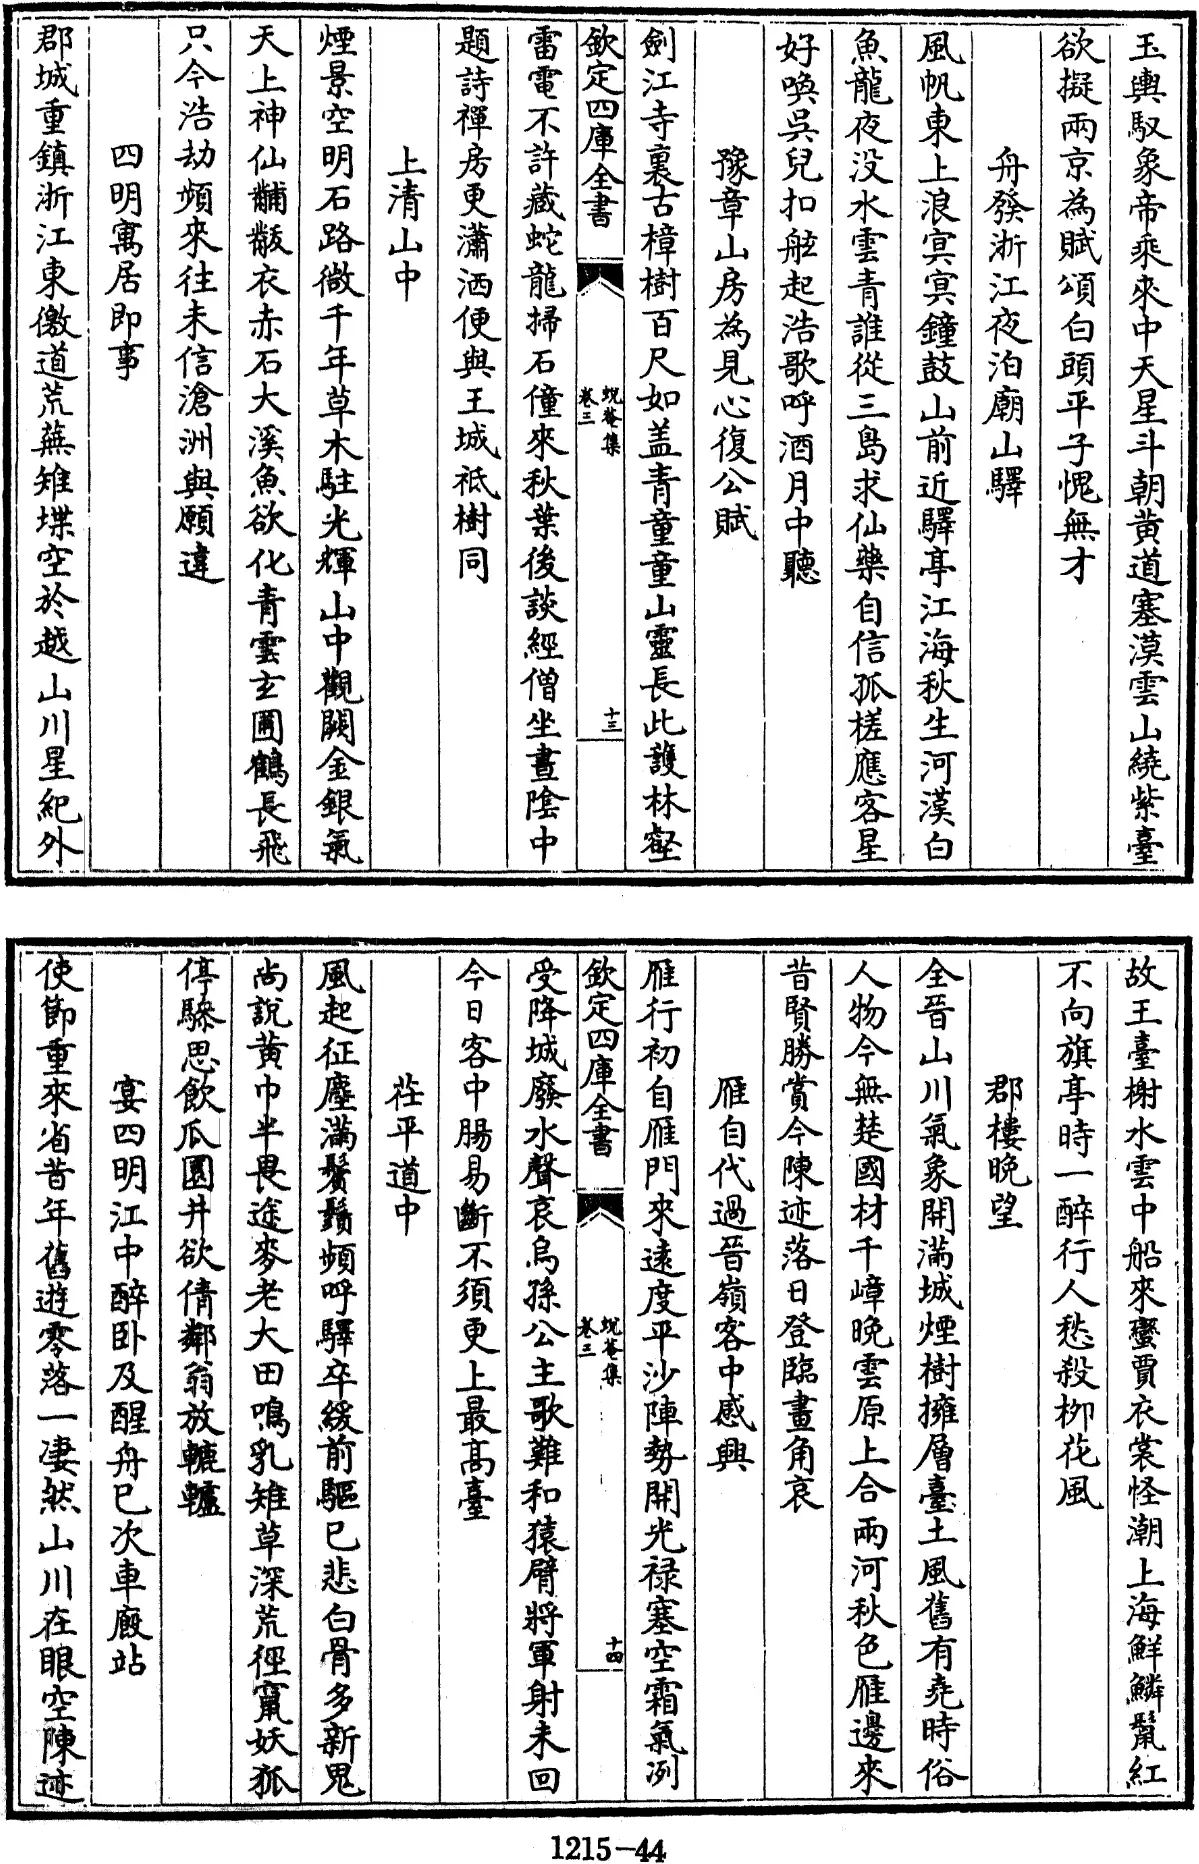 玉輿馭象帝乘來中天星斗朝黄道塞漠雲山繞紫臺
欲擬兩京為賦頌白頭平子愧無才
舟發浙江夜泊廟山驛
風帆東上浪冥冥鐘鼓山前近驛亭江海秋生河漢白
魚龍夜没水雲青誰從三島求仙藥自信孤槎應客星
好喚吳兒扣舷起浩歌呼酒月中聽
豫章山房為見心復公賦
劍江寺裏古樟樹百尺如盖青童童山靈長此護林壑
欽定四庫全書
蛻菴集
卷三
十三
雷電不許藏蛇龍掃石僮來秋葉後談經僧坐晝陰中
題詩禪房更瀟洒便與王城祇樹同
上清山中
煙景空明石路微千年草木駐光輝山中觀闕金銀氣
天上神仙黼黻衣赤石大溪魚欲化青雲玄圃鶴長飛
只今浩劫頻來往未信滄洲與願違
四明寓居即事
郡城重鎮浙江東徼道荒蕪雉堞空於越山川星紀外
故王臺榭水雲中船來蠻賈衣裳怪潮上海鮮鱗鬣紅
不向旗亭時一醉行人愁殺柳花風
郡樓晚望
全晉山川氣象開滿城煙樹擁層臺土風舊有堯時俗
人物今無楚國材千嶂晚雲原上合兩河秋色雁邊來
昔賢勝賞今陳迹落日登臨畫角哀
雁自代過晉嶺客中感興
雁行初自雁門來遠度平沙陣勢開光禄塞空霜氣冽
欽定四庫全書
蛻菴集
卷三
十四
受降城廢水聲哀烏孫公主歌難和猿臂將軍射未回
今日客中腸易斷不須更上最高臺
茌平道中
風起征塵滿鬢鬚頻呼驛卒緩前驅已悲白骨多新鬼
尚說黄巾半畏途麥老大田鳴乳雉草深荒徑竄妖狐
停驂思飲瓜園井欲倩鄰翁放轆轤
宴四明江中醉卧及醒舟已次車廄站
使節重來省昔年舊遊零落一凄然山川在眼空陳迹
1215-44